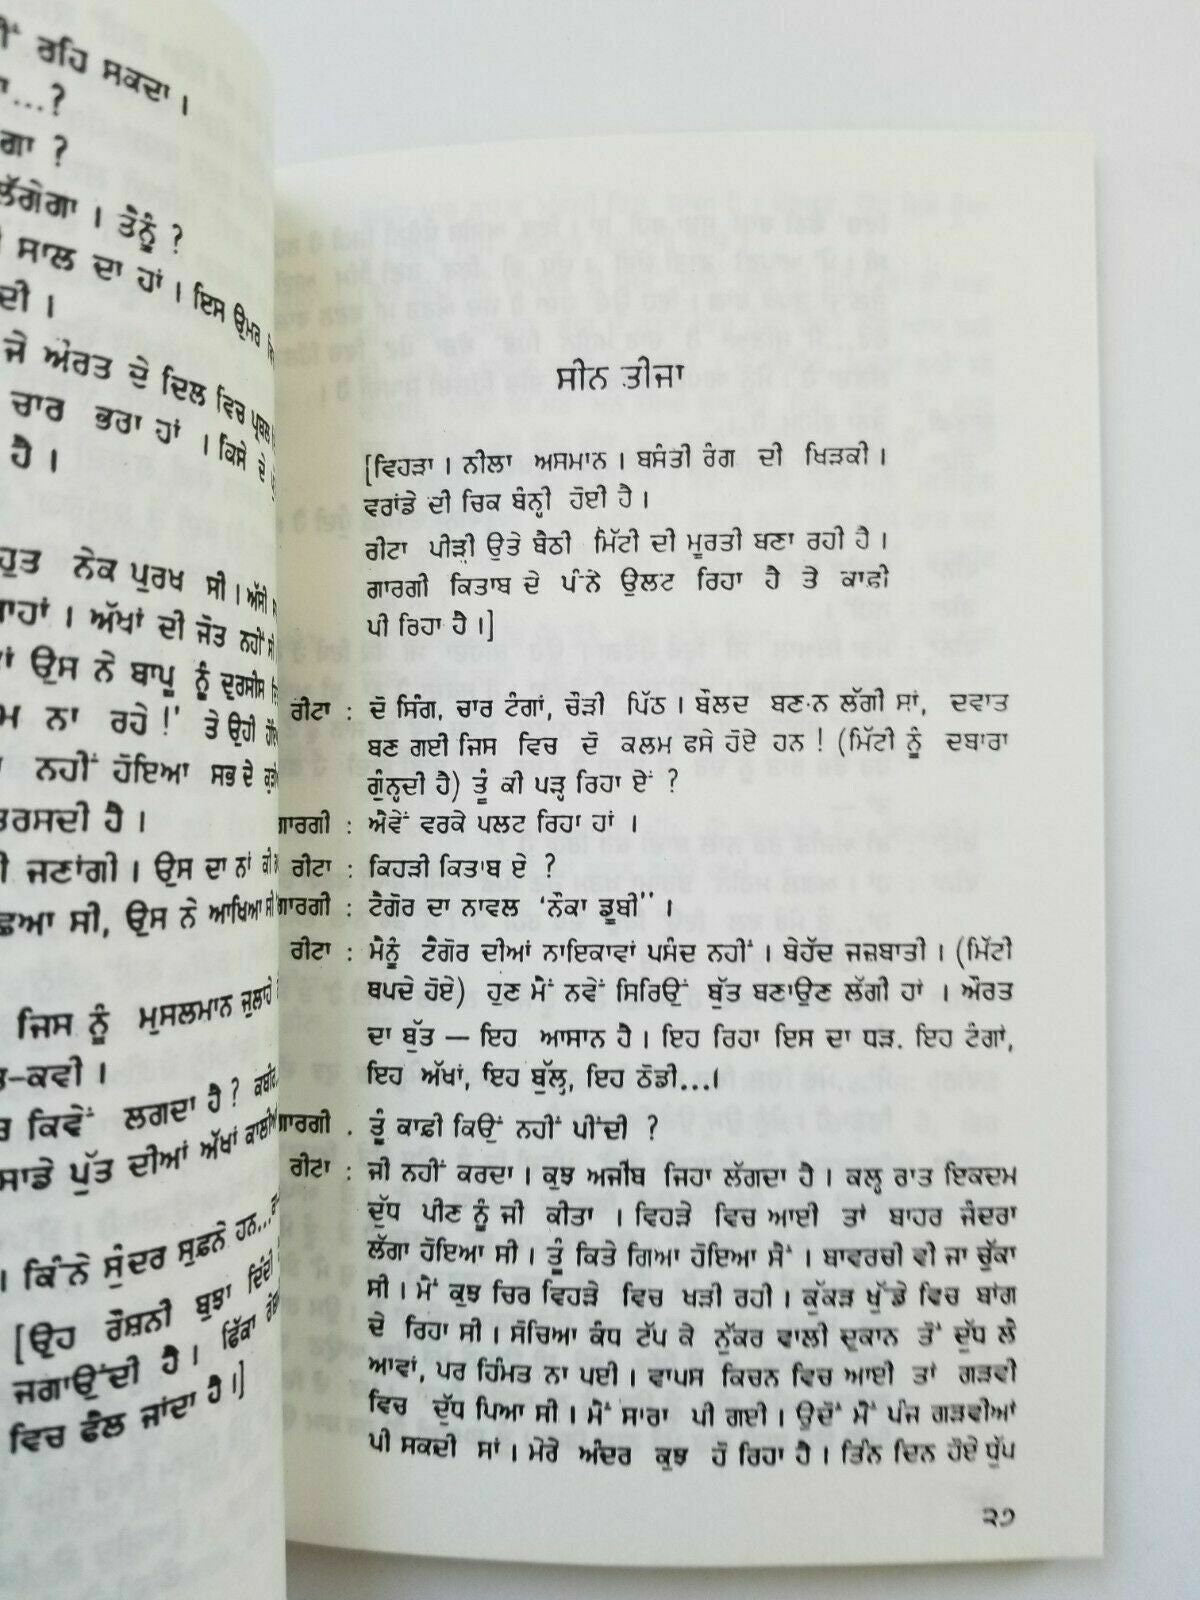 ੀਂ ਰਹਿ ਸਕਦਾ ।
...?
ਗਾ ?
ਲੱਗੇਗਾ । ਤੈਨੂੰ ?
ਸਾਲ ਦਾ ਹਾਂ । ਇਸ ਉਮਰ
ਦੀ ।
ਜੇ ਔਰਤ ਦੇ ਦਿਲ ਵਿਚ ਪ੍ਰਬਲ
ਚਾਰ ਭਰਾ ਹਾਂ । ਕਿਸੇ ਦੇ
ਹੈ ।
ਹੁਤ ਨੇਕ ਪੁਰਖ ਸੀ । ਅੱਸੀ
ਬਾਹਾਂ । ਅੱਖਾਂ ਦੀ ਜੋਤ ਨਹੀਂ ਸੀ
ਉਸ ਨੇ ਬਾਪੂ ਨੂੰ ਦੁਰਸੀਸ
ਮ ਨਾ ਰਹੇ !' ਤੇ ਉਹੀ
ਨਹੀਂ ਹੋਇਆ ਸਭ ਦੇ
ਤਰਸਦੀ ਹੈ ।
ਜਣਾਂਗੀ । ਉਸ ਦਾ ਨਾਂ ਕੀ
ਛਿਆ ਸੀ, ਉਸ ਨੇ ਆਖਿਆ ਸੀ
ਜਿਸ ਨੂੰ ਮੁਸਲਮਾਨ ਜੁਲਾਹੇ
–ਕਵੀ ।
ਕਿਵੇਂ ਲਗਦਾ ਹੈ ?
ਸਾਡੇ ਪੁੱਤ ਦੀਆਂ ਅੱਖਾਂ ਕਾਲੀਆਂ
। ਕਿੰਨੇ ਸੁੰਦਰ ਸੁਫ਼ਨੇ ਹਨ...
[ਉਹ ਰੌਸ਼ਨੀ ਬੁਝਾ ਦਿੰਦੀ
ਜਗਾਉਂਦੀ ਹੈ । ਫਿੱਕਾ
ਵਿਚ ਫੈਲ ਜਾਂਦਾ ਹੈ ।]
ਸੀਨ ਤੀਜਾ
[ਵਿਹੜਾ । ਨੀਲਾ ਅਸਮਾਨ । ਬਸੰਤੀ ਰੰਗ ਦੀ ਖਿੜਕੀ ।
ਵਰਾਂਡੇ ਦੀ ਚਿਕ ਬੰਨ੍ਹੀ ਹੋਈ ਹੈ ।
ਰੀਟਾ ਪੀੜ੍ਹੀ ਉਤੇ ਬੈਠੀ ਮਿੱਟੀ ਦੀ ਮੂਰਤੀ ਬਣਾ ਰਹੀ ਹੈ ।
ਗਾਰਗੀ ਕਿਤਾਬ ਦੇ ਪੰਨੇ ਉਲਟ ਰਿਹਾ ਹੈ ਤੇ ਕਾਫ਼ੀ
ਪੀ ਰਿਹਾ ਹੈ ।]
ਰੀਟਾ : ਦੋ ਸਿੰਗ, ਚਾਰ ਟੰਗਾਂ, ਚੌੜੀ ਪਿੱਠ । ਬੌਲਦ ਬਣਨ ਲੱਗੀ ਸਾਂ, ਦਵਾਤ
ਬਣ ਗਈ ਜਿਸ ਵਿਚ ਦੋ ਕਲਮ ਫਸੇ ਹੋਏ ਹਨ ! (ਮਿੱਟੀ ਨੂੰ ਦਬਾਰਾ
ਗੁੰਨ੍ਹਦੀ ਹੈ) ਤੂੰ ਕੀ ਪੜ੍ਹ ਰਿਹਾ ਏਂ ?
ਗਾਰਗੀ : ਐਵੇਂ ਵਰਕੇ ਪਲਟ ਰਿਹਾ ਹਾਂ ।
ਰੀਟਾ : ਕਿਹੜੀ ਕਿਤਾਬ ਏ ?
ਗਾਰਗੀ : ਟੈਗੋਰ ਦਾ ਨਾਵਲ ‘ਨੌਕਾ ਡੂਬੀ’’ ।
ਰੀਟਾ : ਮੈਨੂੰ ਟੈਗੋਰ ਦੀਆਂ ਨਾਇਕਾਵਾਂ ਪਸੰਦ ਨਹੀਂ । ਬੇਹੱਦ ਜਜ਼ਬਾਤੀ । (ਮਿੱਟੀ
ਥਪਦੇ ਹੋਏ) ਹੁਣ ਮੈਂ ਨਵੇਂ ਸਿਰਿਉਂ ਬੁੱਤ ਬਣਾਉਣ ਲੱਗੀ ਹਾਂ । ਔਰਤ
ਦਾ ਬੁੱਤ — ਇਹ ਆਸਾਨ ਹੈ । ਇਹ ਰਿਹਾ ਇਸ ਦਾ ਧੜ. ਇਹ ਟੰਗਾਂ,
ਇਹ ਅੱਖਾਂ, ਇਹ ਬੁੱਲ੍ਹ, ਇਹ ਠੋਡੀ...।
ਗਾਰਗੀ . ਤੂੰ ਕਾਫ਼ੀ ਕਿਉਂ ਨਹੀਂ ਪੀਂਦੀ ?
ਰੀਟਾ : ਜੀ ਨਹੀਂ ਕਰਦਾ । ਕੁਝ ਅਜੀਬ ਜਿਹਾ ਲੱਗਦਾ ਹੈ । ਕਲ੍ਹ ਰਾਤ ਇਕਦਮ
ਦੁੱਧ ਪੀਣ ਨੂੰ ਜੀ ਕੀਤਾ । ਵਿਹੜੇ ਵਿਚ ਆਈ ਤਾਂ ਬਾਹਰ ਜੰਦਰਾ
ਲੱਗਾ ਹੋਇਆ ਸੀ । ਤੂੰ ਕਿਤੇ ਗਿਆ ਹੋਇਆ ਸੈਂ । ਬਾਵਰਚੀ ਵੀ ਜਾ ਚੁੱਕਾ
ਸੀ । ਮੈਂ ਕੁਝ ਚਿਰ ਵਿਹੜੇ ਵਿਚ ਖੜੀ ਰਹੀ । ਕੁੱਕੜ ਖੁੱਡੇ ਵਿਚ ਬਾਂਗ
ਦੇ ਰਿਹਾ ਸੀ । ਸੋਚਿਆ ਕੰਧ ਟੱਪ ਕੇ ਨੁੱਕਰ ਵਾਲੀ ਦੁਕਾਨ ਤੋਂ ਦੁੱਧ ਲੈ
ਆਵਾਂ, ਪਰ ਹਿੰਮਤ ਨਾ ਪਈ । ਵਾਪਸ ਕਿਚਨ ਵਿਚ ਆਈ ਤਾਂ ਗੜਵੀ
ਵਿਚ ਦੁੱਧ ਪਿਆ ਸੀ । ਮੈਂ ਸਾਰਾ ਪੀ ਗਈ । ਉਦੋਂ ਮੈਂ ਪੰਜ ਗੜਵੀਆਂ
ਪੀ ਸਕਦੀ ਸਾਂ । ਮੇਰੇ ਅੰਦਰ ਕੁਝ ਹੋ ਰਿਹਾ ਹੈ । ਤਿੰਨ ਦਿਨ ਹੋਏ ਧੁੱਪ
੨੭